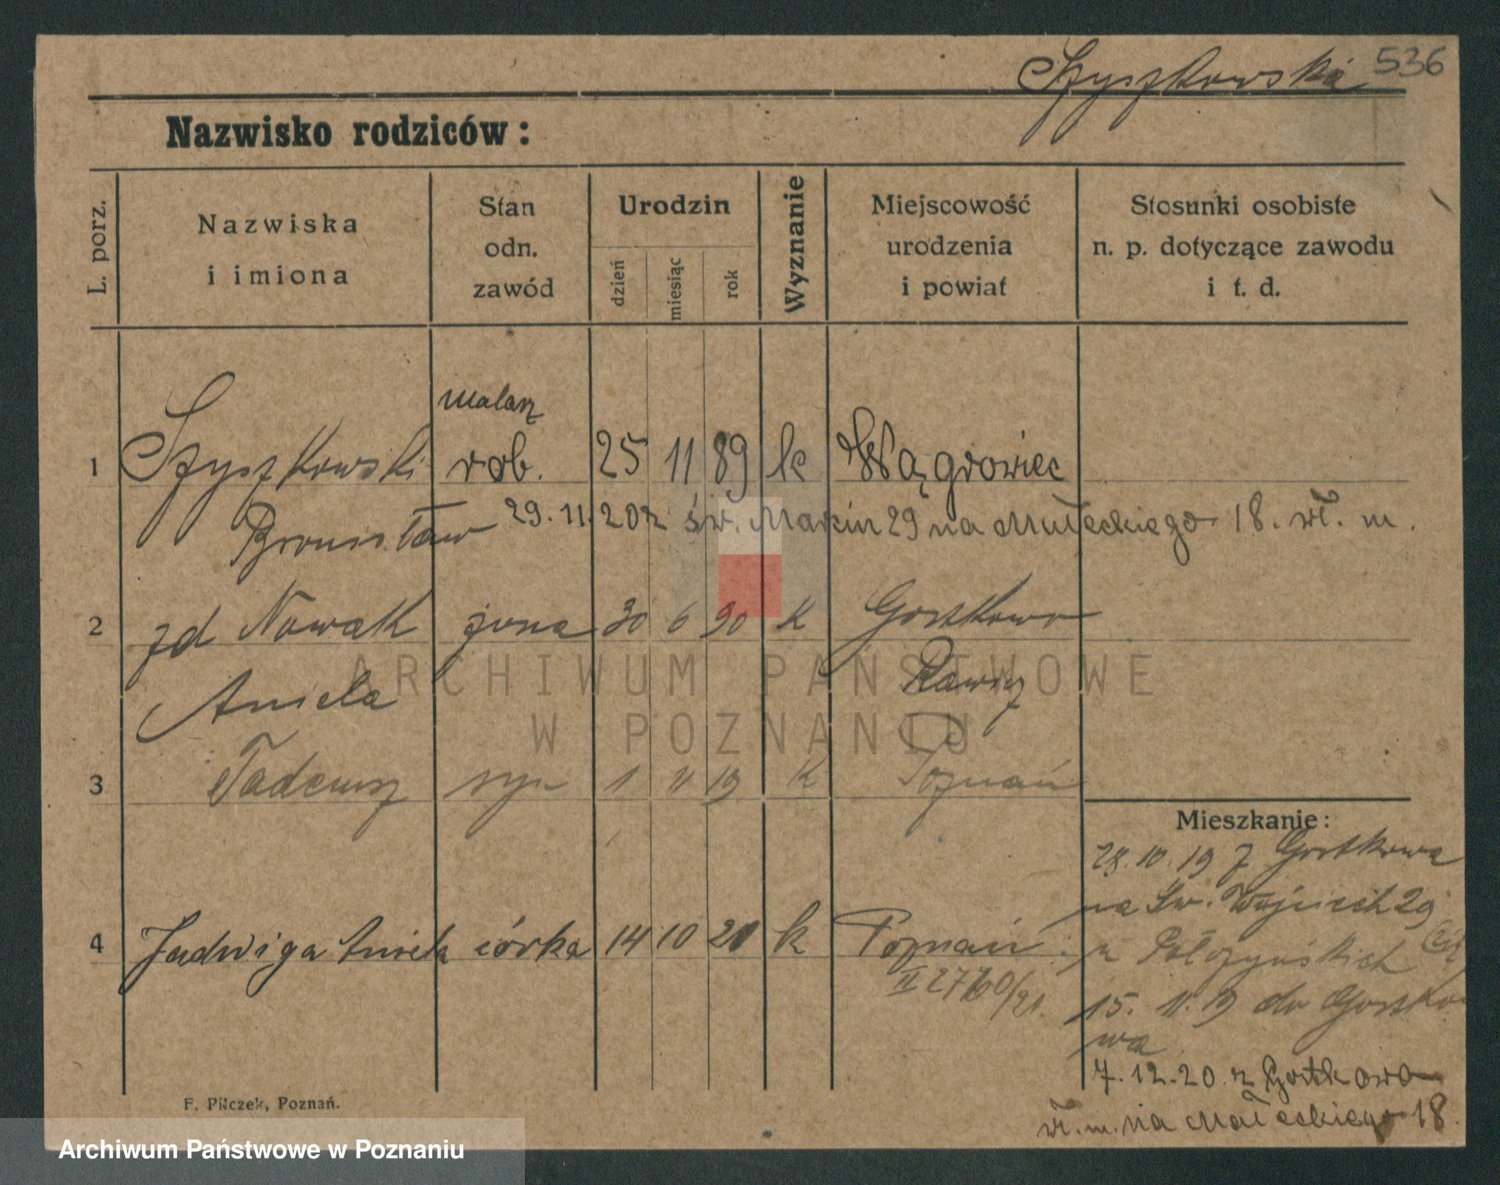 Szyszkowski 536
Nazwisko rodziców:
L. porz.
Nazwiska
i imiona
Stan
odn.
zawód
Urodzin
dzień
miesiąc
rok
Wyznanie
Miejscowość
urodzenia
i powiat
Stosunki osobiste
n. p. dotyczące zawodu
i t. d.
malarz
1 Szyszkowski rob. 25 11 89 k Wągrowiec
Bronisław 29.11.20 z św. Marcin 29 na Małeckiego 18. wł. m.
2 zd Nowak żona 30 6 90 k Gostkowo
Aniela Rawicz
3 Tadeusz syn 1 11 19 k Poznań
4 Jadwiga Aniela córka 14 10 20 k Poznań
II 2760/21.
Mieszkanie:
28.10.19 z Gostkowa
na Św. Wojciech 29
u
15. 11. 19 do Gostko
wa
7.12.20 z Gostkowo
wł. m. na Małeckiego 18.
F. Pilczek, Poznań.
ARCHIWUM PAŃSTWOWE
W POZNANIU
Archiwum Państwowe w Poznaniu